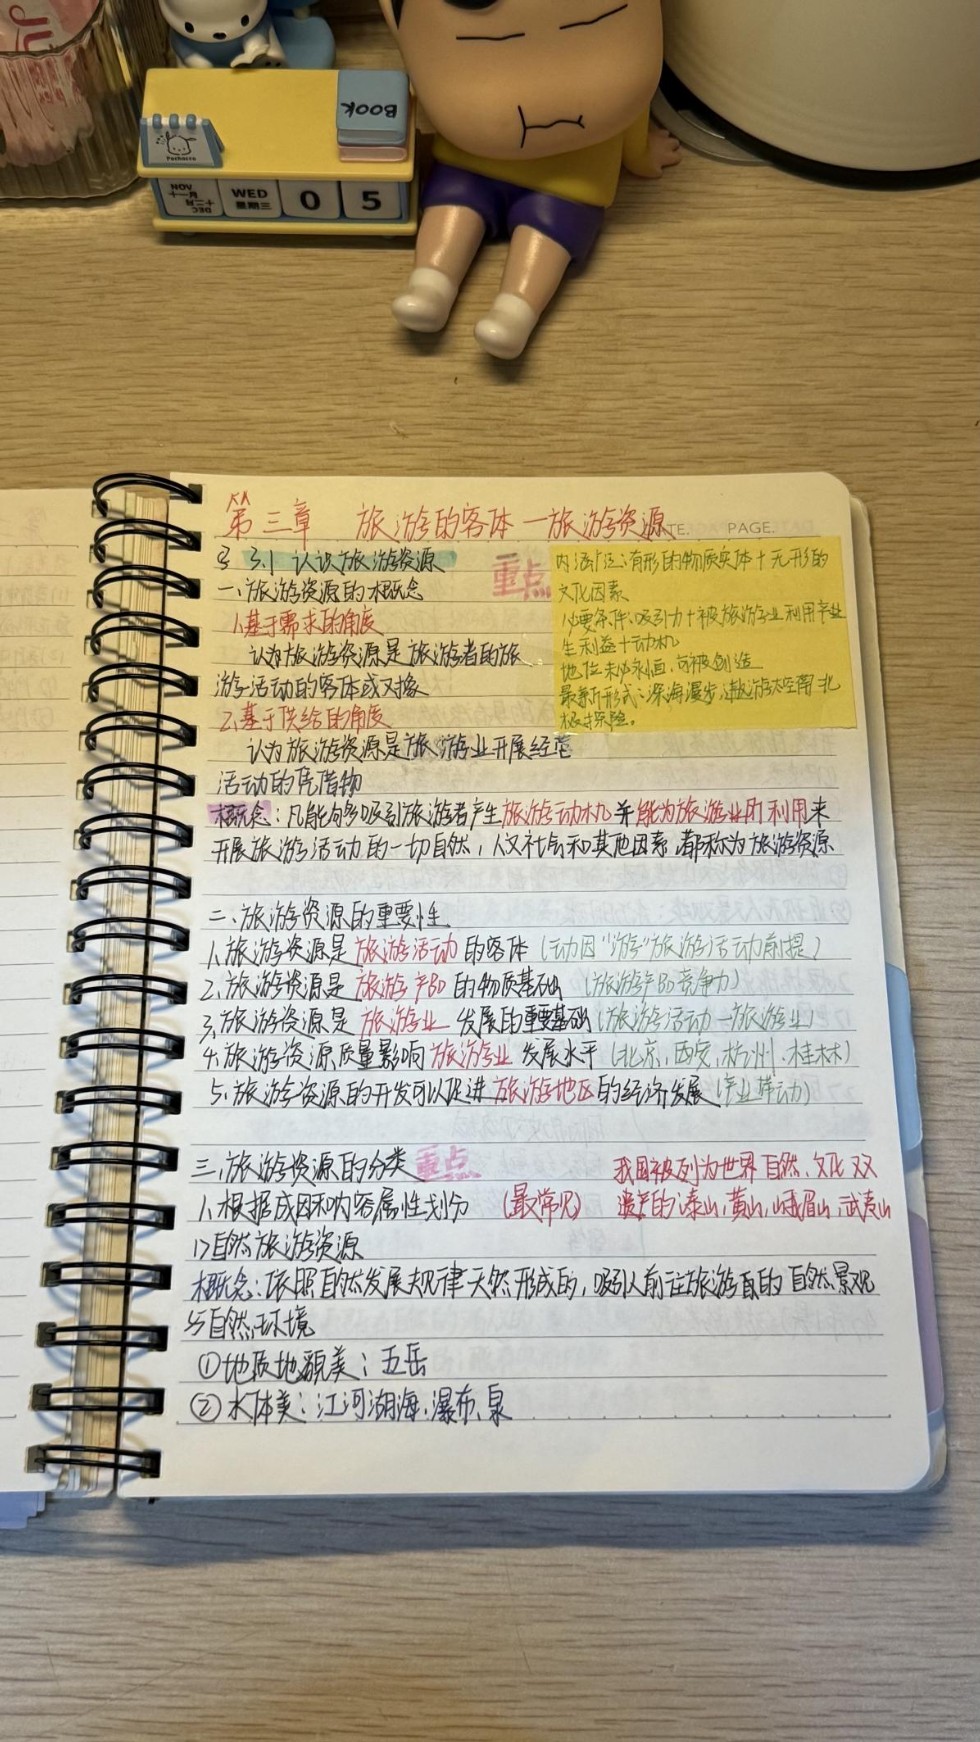 BOOK
Pochacco
NOV
十一月
DEC
十二月
WED
星期三
0 5
DATE. PAGE.
第三章 旅游的客体—旅游资源
§3.1 认识旅游资源
重点
一、旅游资源的概念
1.基于需求的角度
认为旅游资源是旅游者的旅
游活动的客体或对象
2.基于供给的角度
认为旅游资源是旅游业开展经营
活动的凭借物
内涵广泛:有形的物质实体+无形的
文化因素
必要条件:吸引力+被旅游业利用产业
生利益+动机
地位未必永恒,可被创造
最新形式:深海漫步,遨游太空,南北
极探险。
概念:凡能够吸引旅游者产生旅游动机并能为旅游业所利用来
开展旅游活动的一切自然,人文社会和其他因素,都称为旅游资源
二、旅游资源的重要性
1.旅游资源是旅游活动的客体(动因"游"旅游活动前提)
2.旅游资源是旅游产品的物质基础(旅游产品竞争力)
3.旅游资源是旅游业发展的重要基础(旅游活动—旅游业)
4.旅游资源质量影响旅游业发展水平(北京、西安、杭州、桂林)
5.旅游资源的开发可以促进旅游地区的经济发展(产业带动)
三、旅游资源的分类 重点
我国被列为世界自然、文化双
1.根据成因和内容属性划分 (最常见)
遗产的:泰山,黄山,峨眉山,武夷山
1>自然旅游资源
概念:依照自然发展规律天然形成的,吸引人前往旅游的自然景观
与自然环境
①地质地貌美:五岳
②水体美:江河湖海、瀑布、泉